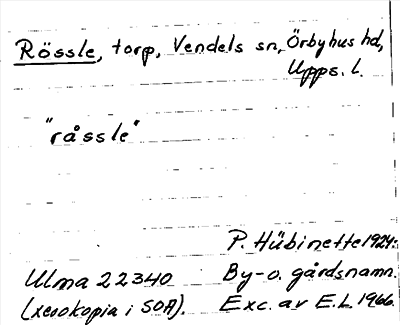 Rössle, torp, Vendels sn, Örbyhus hd,
Upps. l.
"råssle"
P. Hübinette 1924:
Ulma 22340 By- o. gårdsnamn.
(xerokopia i SOA). Exc. av E.L. 1966.